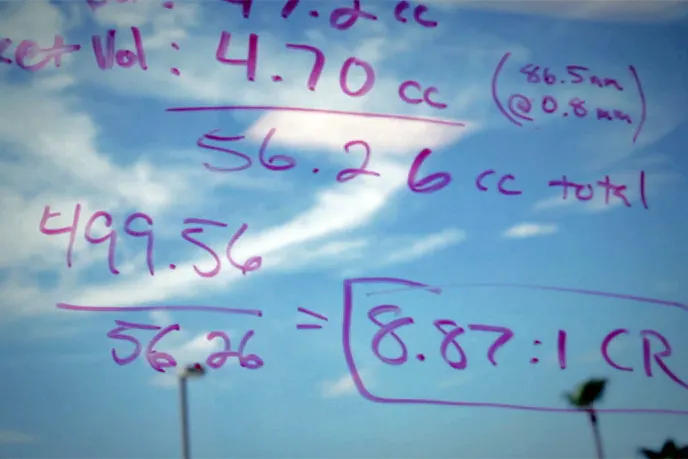 cc
ket Vol: 4.70 cc
(86.5mm
@ 0.8 mm)
56.26 cc total
499.56
56.26
= 8.87:1 CR